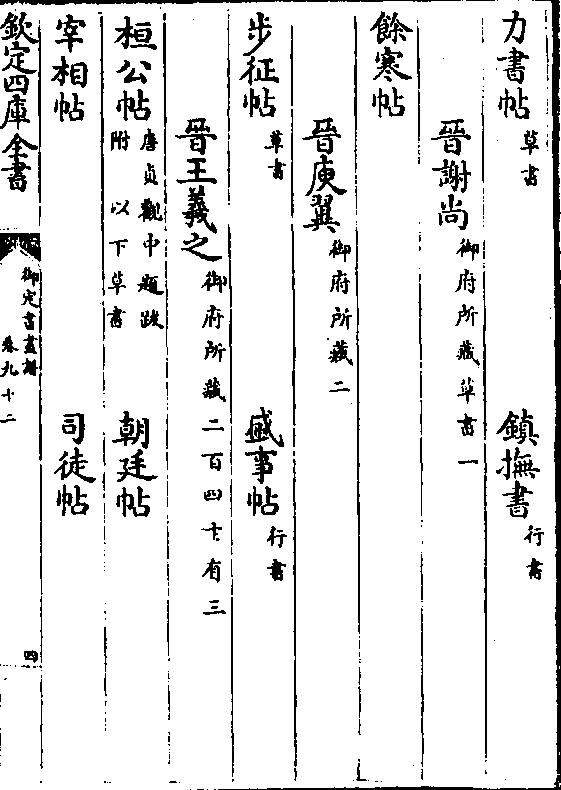 力書帖草書 鎮撫書行書
晉謝尚御府所藏草書一
餘寒帖
晉庾翼御府所藏二
步征帖草書 盛事帖行書
晉王羲之御府所藏二百四十有三
桓公帖唐貞觀中題跋附以下草書 朝廷帖
宰相帖 司徒帖
欽定四庫全書 御定書畫譜卷九十二 四